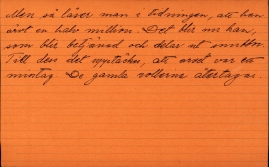 Men så läser man i tidningen, att han
ärvt en halv million. Det blir nu han,
som blir betjänad och delar ut smulor.
Till dess det upptäckes, att arvet var ett
misstag. De gamla rollerna återtagas.